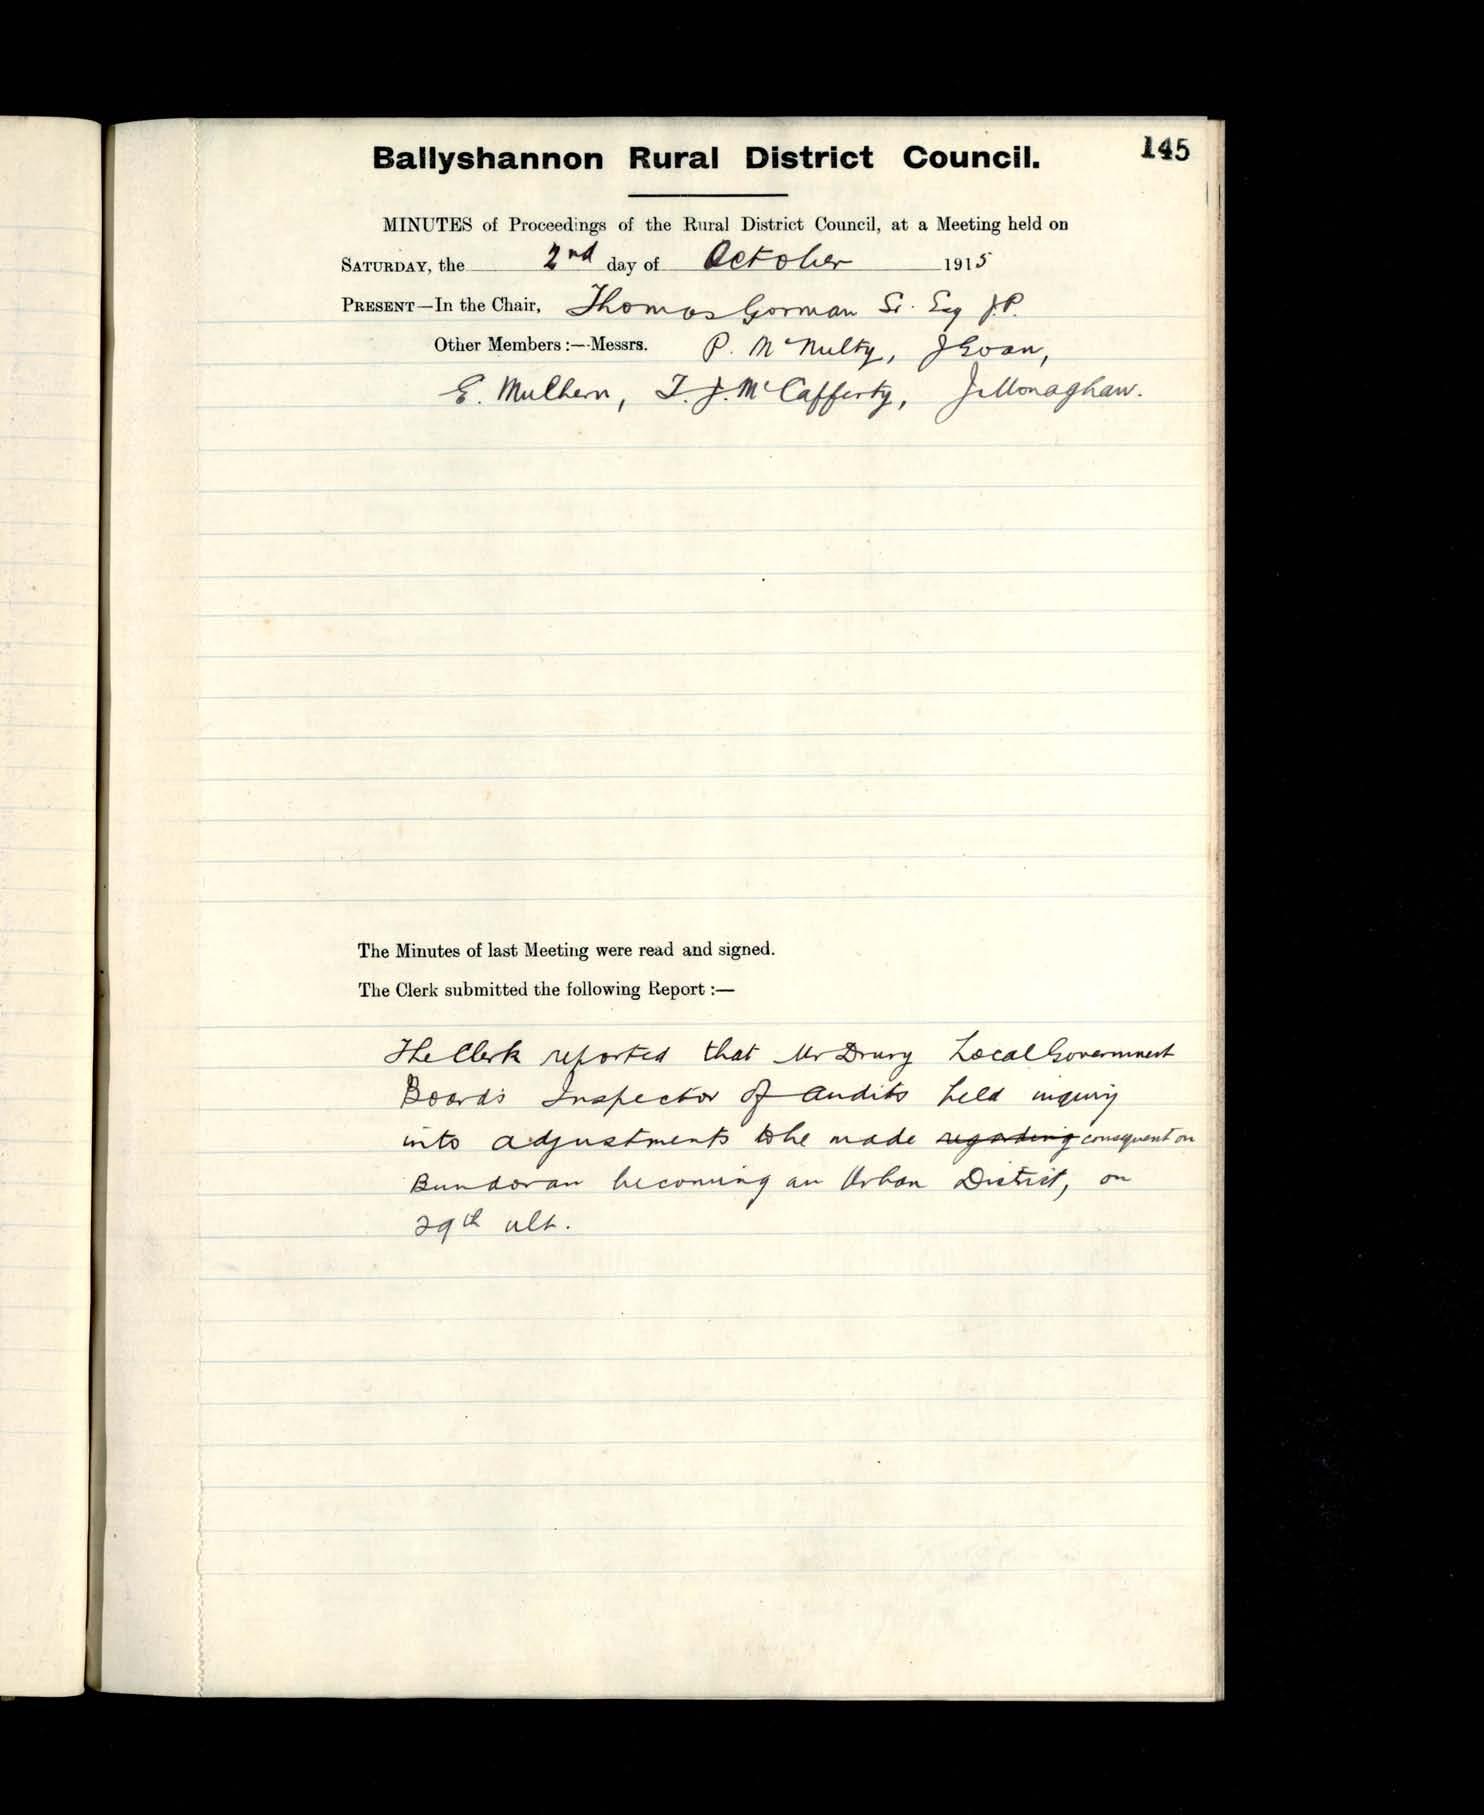 Ballyshannon Rural District Council.
145
MINUTES of Proceedings of the Rural District Council, at a Meeting held on
SATURDAY, the 2nd day of October 1915
PRESENT—In the Chair, Thomas Gorman Sr. Esq J.P.
Other Members :—Messrs. P. McNulty, J Goan,
E. Mulhern, T. J. McCafferty, J. Monaghan.
The Minutes of last Meeting were read and signed.
The Clerk submitted the following Report :—
The Clerk reported that Mr Drury Local Government
Boards Inspector of Audits held inquiry
into adjustments to be made regarding consequent on
Bundoran becoming an Urban District, on
29th ult.